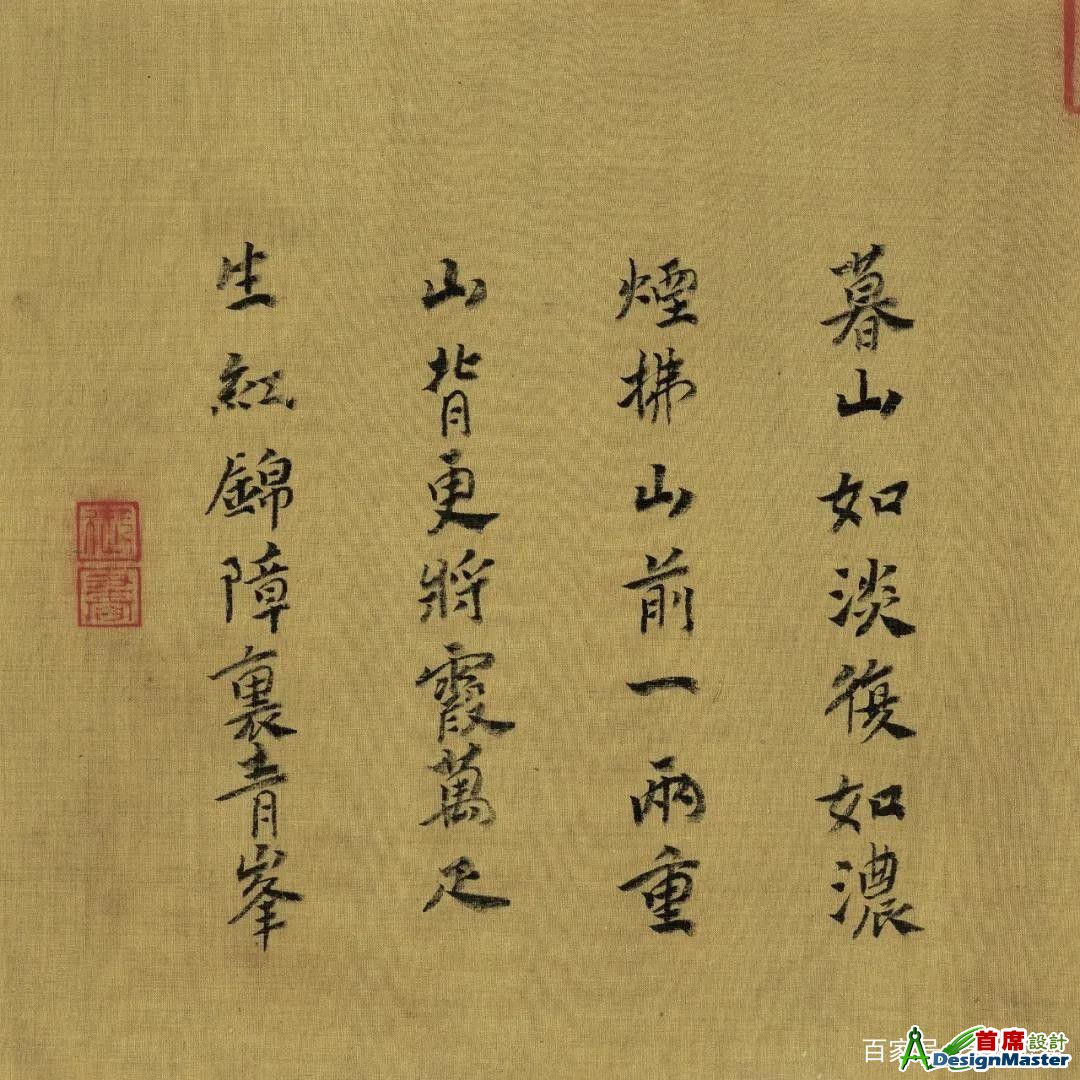 暮山如淡復如濃
煙拂山前一兩重
山背更將霞萬疋
生紅錦障裏青峯
御書
百家号
首席設計
DesignMaster